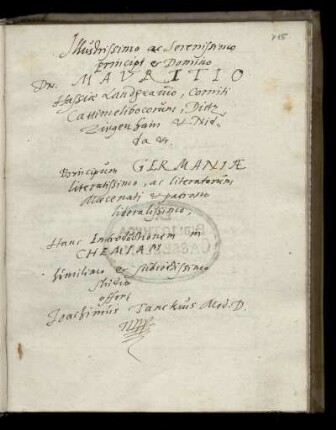 Illustrissimo ac Serenissimo
principi et Domino
Dn. MAURITIO
Hassiæ Landgravio, Comiti
Cattimelibocorum, Dietz
Zigenhain & Nid
da &c.
Principum GERMANIÆ
literatissimo, ac literatorum
Mœcenati & patrono
liberalissimo,
Hanc Introductionem in
CHEMIAM
humilimo et studiosissimo
studio
offert
Joachimus Tanckius Med. D.